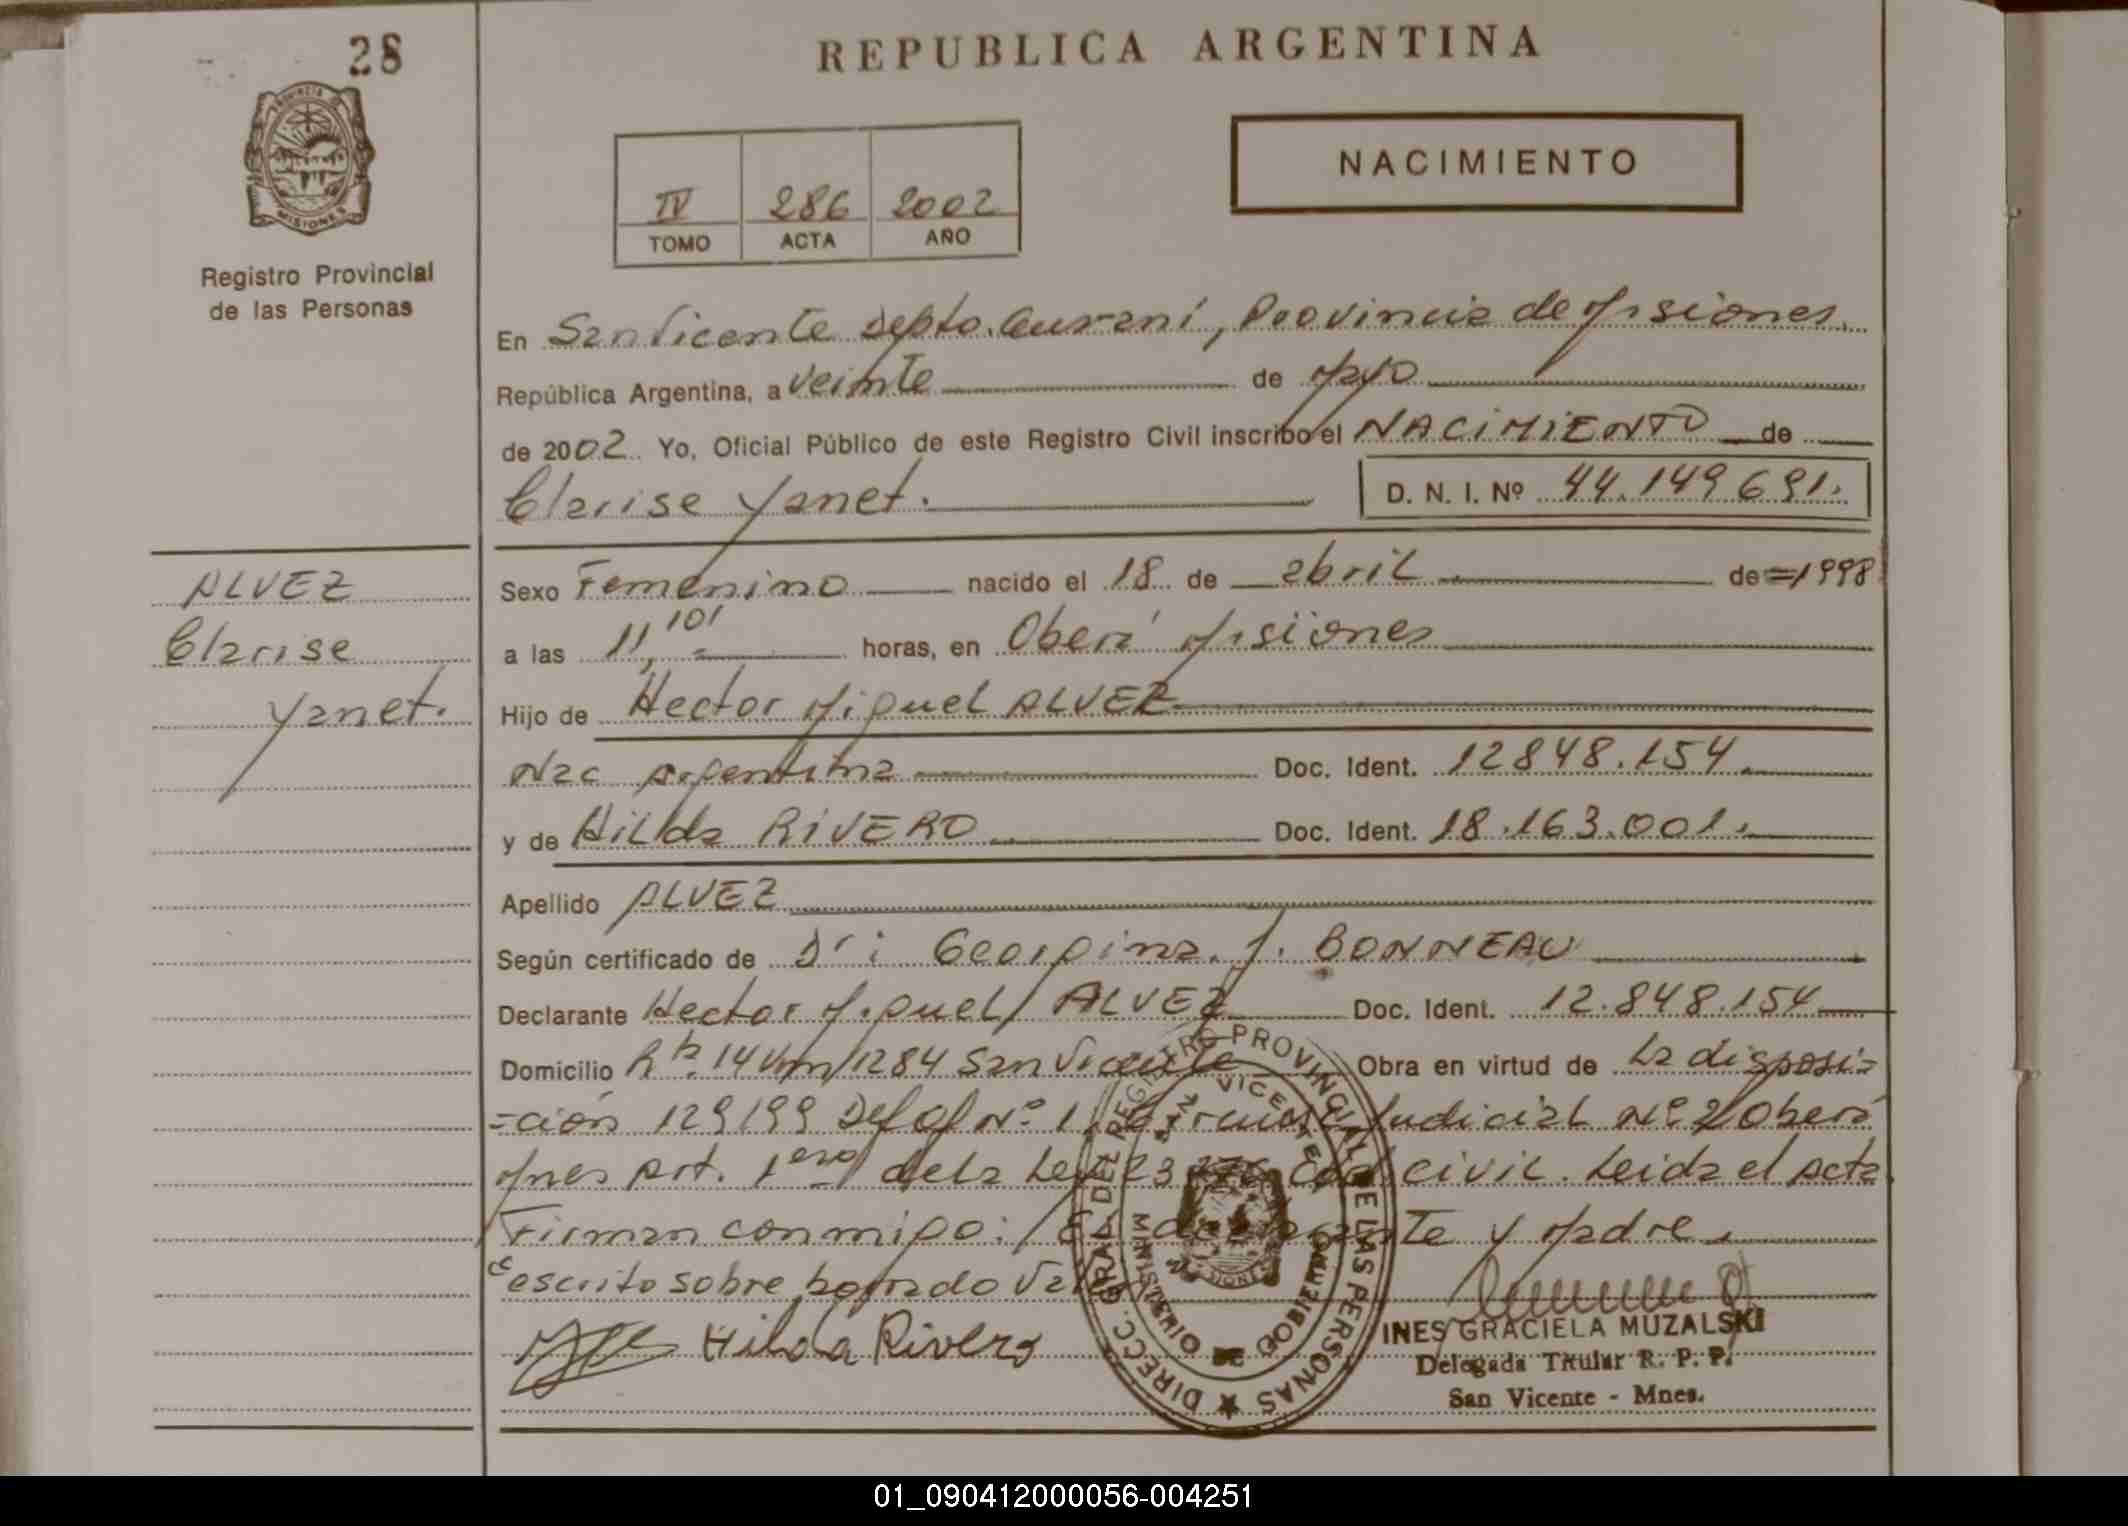 28
REPUBLICA ARGENTINA
PROVINCIA DE
MISIONES
Registro Provincial
de las Personas
NACIMIENTO
IV 286 2002
TOMO ACTA AÑO
En San Vicente Depto. Guaraní, Provincia de Misiones
República Argentina, a veinte de Mayo
de 2002. Yo, Oficial Público de este Registro Civil inscribo el NACIMIENTO de
Clarise Yanet.
D. N. I. Nº 44.149.691.
ALVEZ
Clarise
Yanet.
Sexo Femenino nacido el 18 de abril de =1998
a las 11,10' horas, en Oberá Misiones
Hijo de Hector Miguel ALVEZ
Nac Argentina Doc. Ident. 12848.154
y de Hilda RIVERO Doc. Ident. 18.163.001.
Apellido ALVEZ
Según certificado de Georgina. J. BONNEAU
Declarante Hector Miguel ALVEZ Doc. Ident. 12.848.154
Domicilio Rta. 14 Km 1284 San Vicente Obra en virtud de la disposi=
=ción 129/99 Def Of Nº 1 Judicial Nº 2 Oberá
Mnes Art. 1ero de la Ley civil. Leida el Acta
Firman conmigo: El y Madre.
escrito sobre borrado
Hilda Rivero
DIRECC. GRAL. DEL REGISTRO PROVINCIAL DE LAS PERSONAS
SAN VICENTE
MINISTERIO DE GOBIERNO
INES GRACIELA MUZALSKI
Delegada Titular R. P. P.
San Vicente - Mnes.
01_090412000056-004251